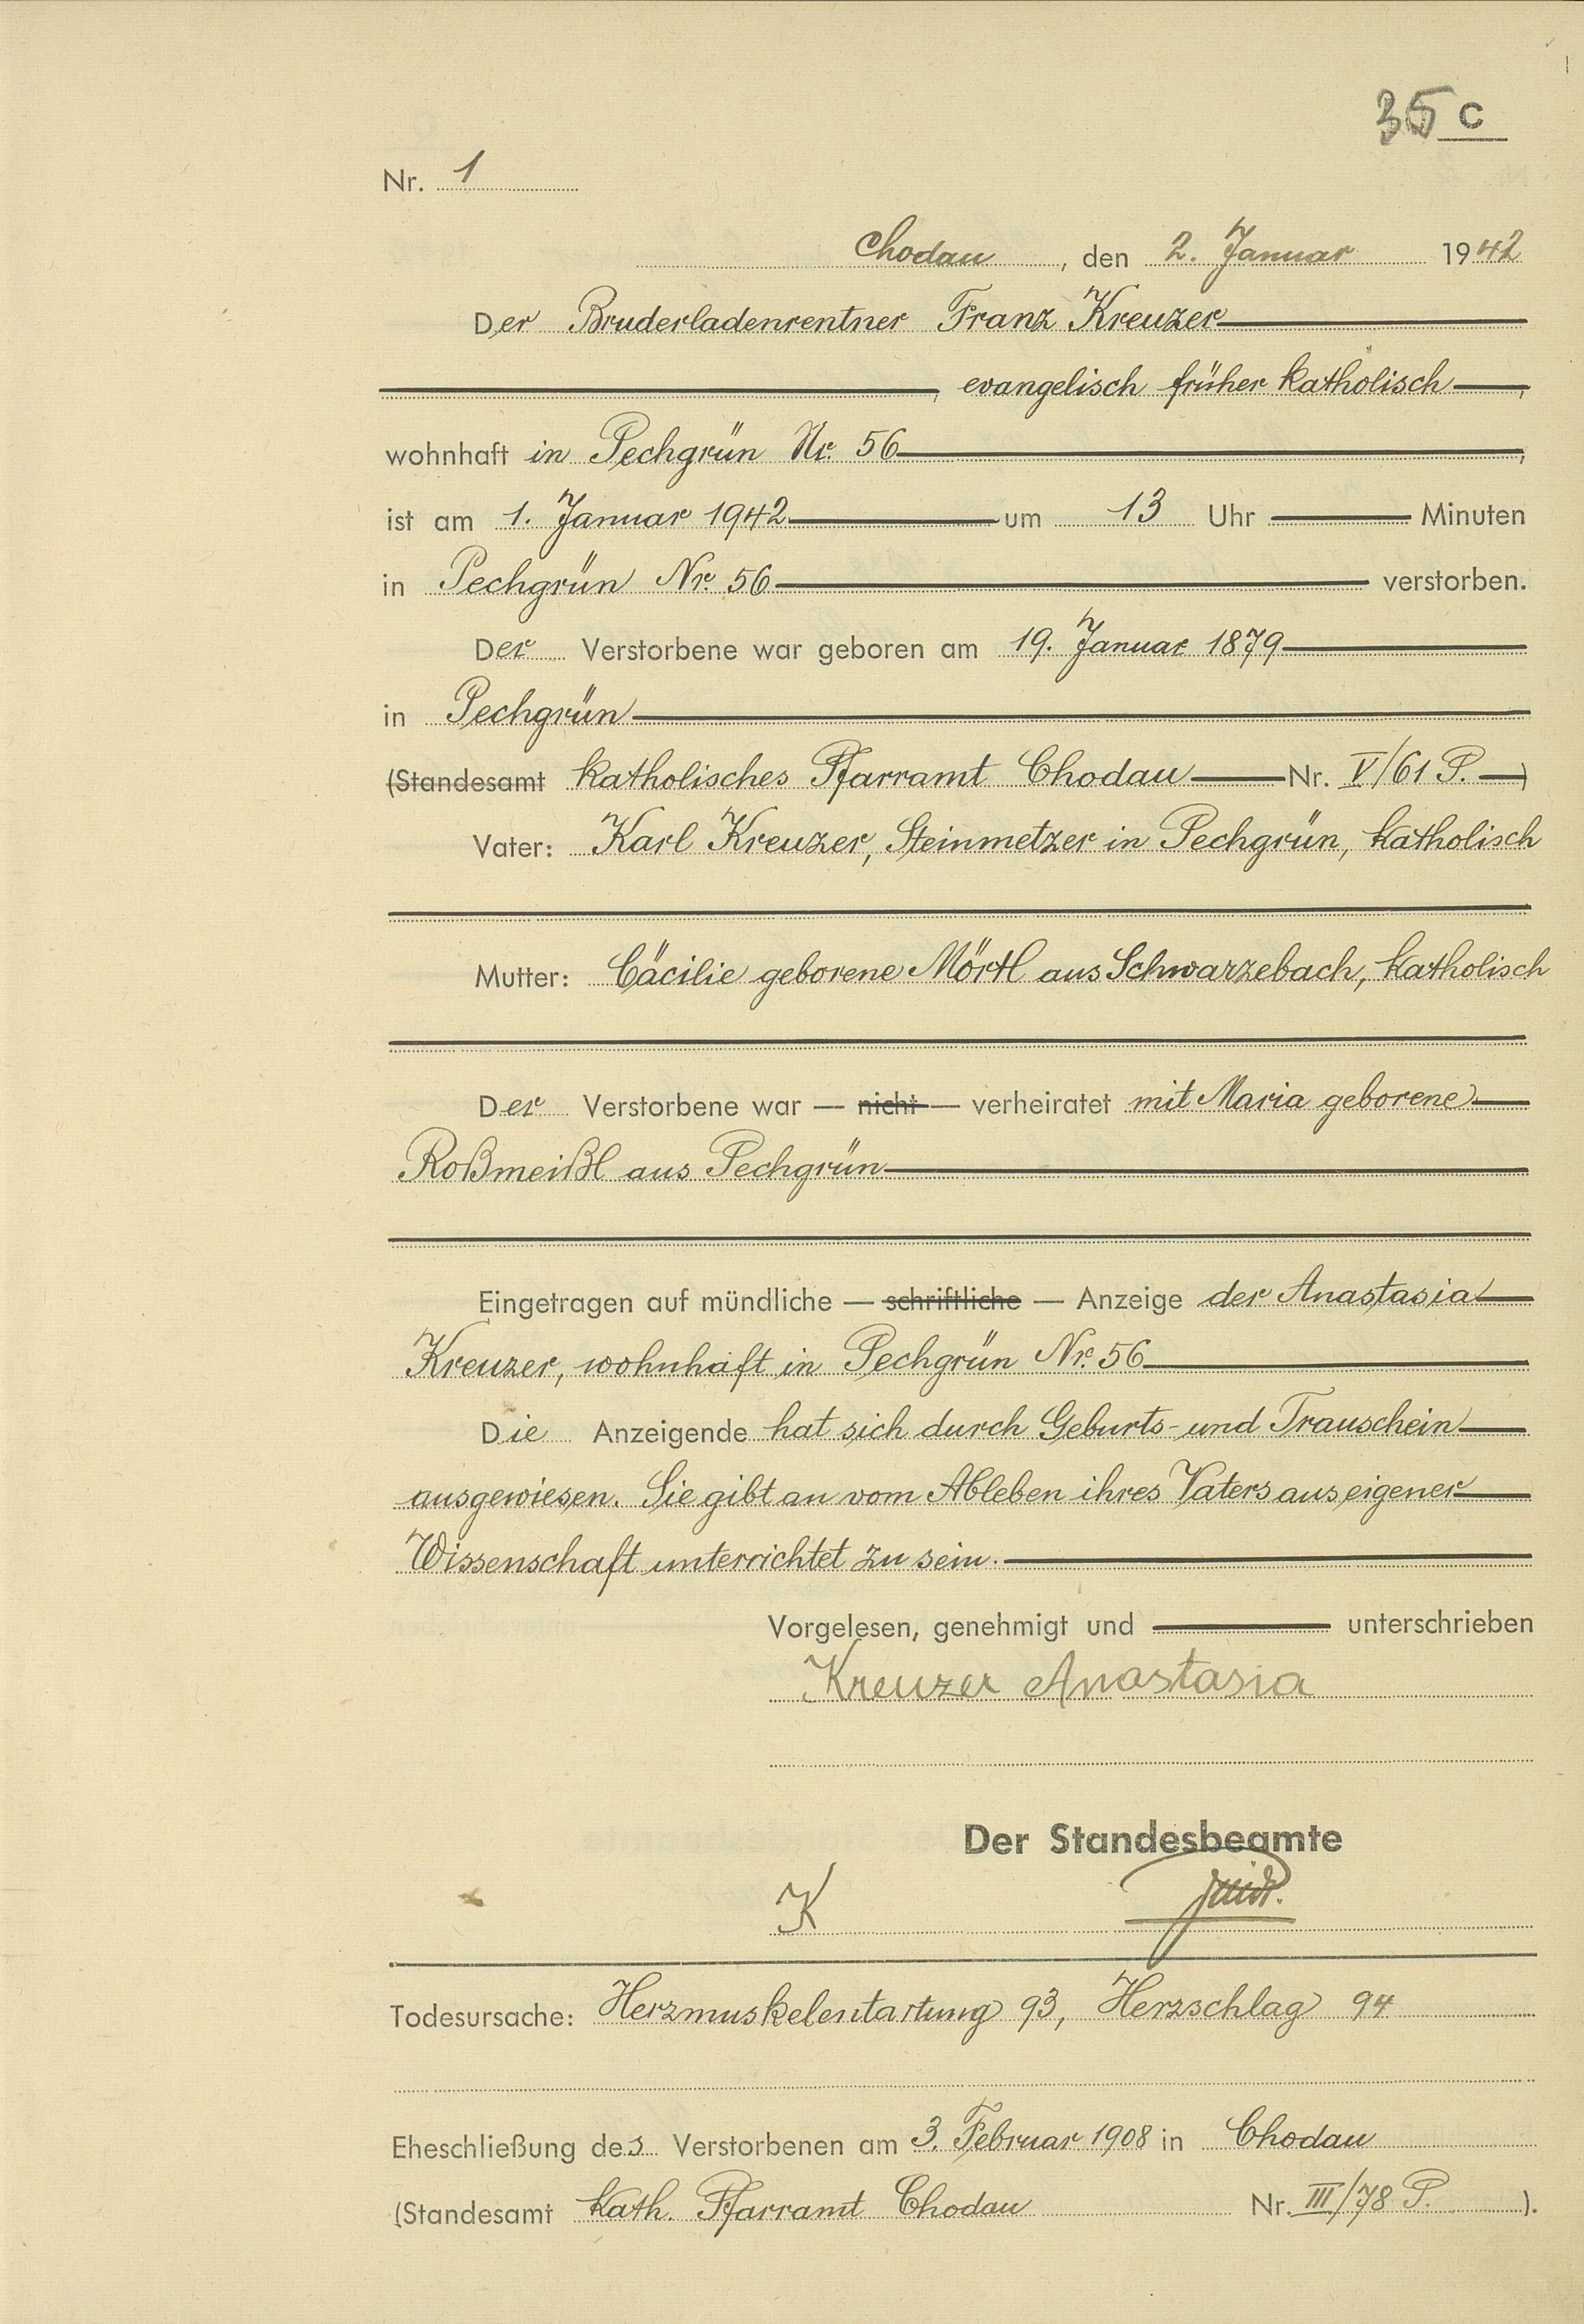 35 C
Nr. 1
Chodau, den 2. Januar 1942
Der Bruderladenrentner Franz Kreuzer
, evangelisch früher katholisch,
wohnhaft in Pechgrün Nr. 56,
ist am 1. Januar 1942 um 13 Uhr Minuten
in Pechgrün Nr. 56 verstorben.
Der Verstorbene war geboren am 19. Januar 1879
in Pechgrün
(Standesamt katholisches Pfarramt Chodau Nr. V/61 P.)
Vater: Karl Kreuzer, Steinmetzer in Pechgrün, katholisch
Mutter: Cäcilie geborene Mörtl aus Schwarzebach, katholisch
Der Verstorbene war — nicht — verheiratet mit Maria geborene
Roßmeißl aus Pechgrün
Eingetragen auf mündliche — schriftliche — Anzeige der Anastasia
Kreuzer, wohnhaft in Pechgrün Nr. 56
Die Anzeigende hat sich durch Geburts- und Trauschein
ausgewiesen. Sie gibt an vom Ableben ihres Vaters aus eigener
Wissenschaft unterrichtet zu sein.
Vorgelesen, genehmigt und unterschrieben
Kreuzer Anastasia
Der Standesbeamte
K
Todesursache: Herzmuskelentartung 93, Herzschlag 94
Eheschließung des Verstorbenen am 3. Februar 1908 in Chodau
(Standesamt Kath. Pfarramt Chodau Nr. III/78 P.).